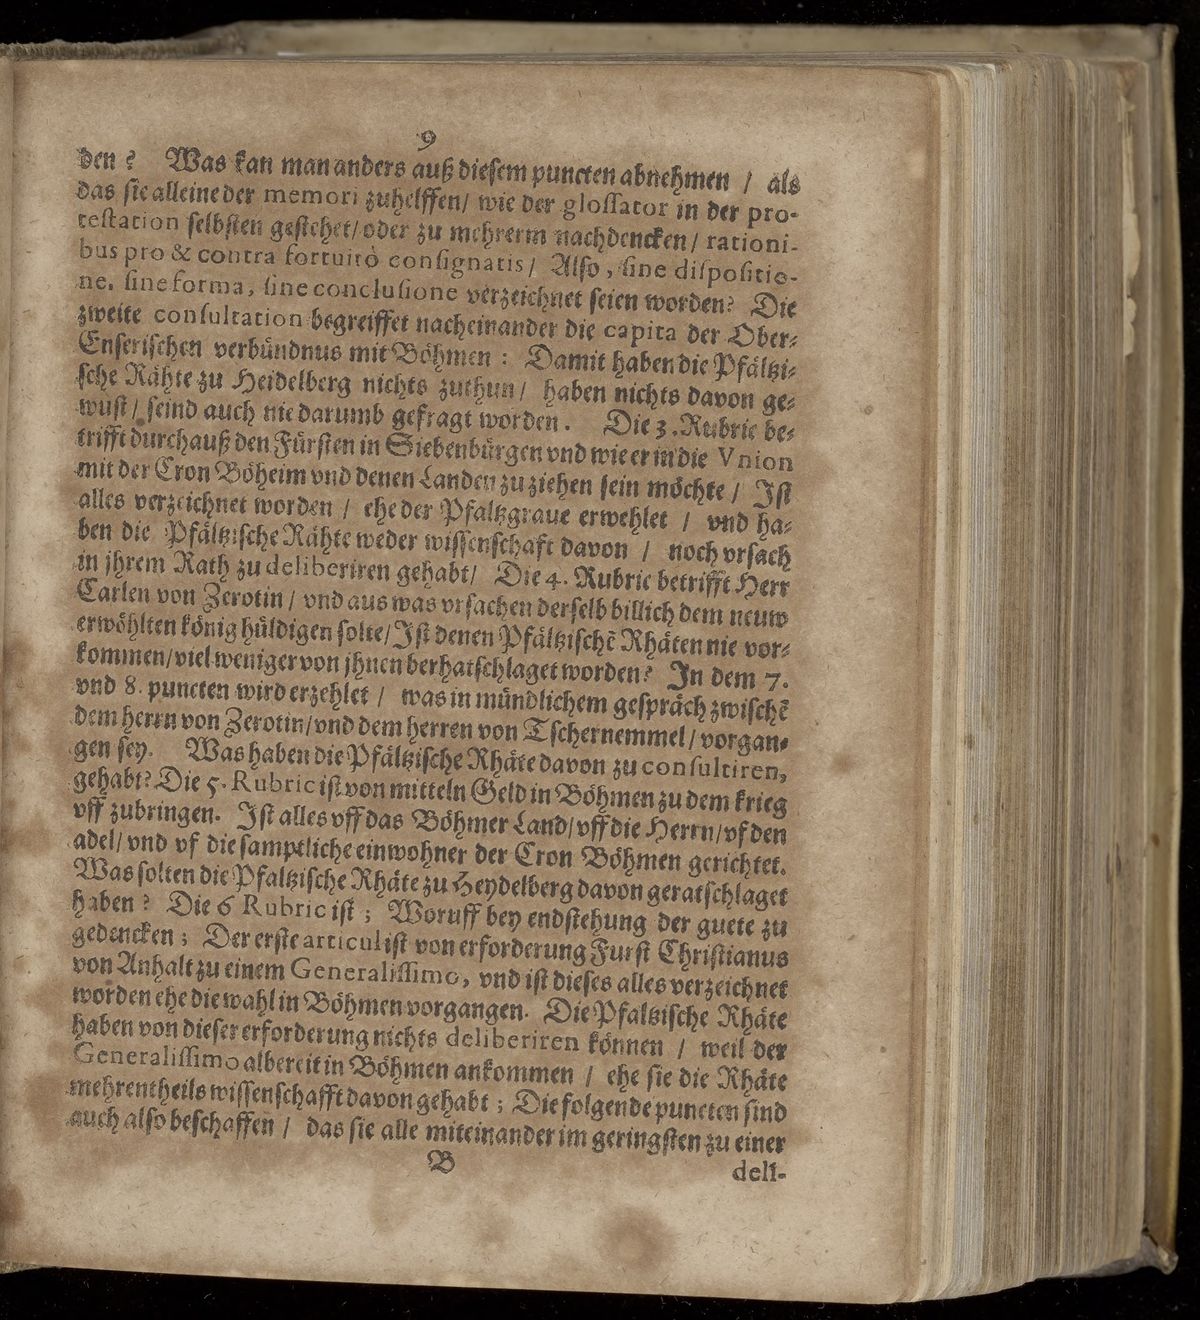 9
den? Was kan man anders auß diesem puncten abnehmen / als
das sie alleine der memori zuhelffen / wie der glossator in der pro-
testation selbsten gestehet / oder zu mehrerm nachdencken / rationi-
bus pro & contra fortuitò consignatis / Also, sine dispositio-
ne, sine forma, sine conclusione verzeichnet seien worden? Die
zweite consultation begreiffet nacheinander die capita der Ober-
Enserischen verbündnus mit Böhmen: Damit haben die Pfältzi-
sche Rähte zu Heidelberg nichts zuthun / haben nichts davon ge-
wust / seind auch nie darumb gefragt worden. Die 3. Rubric be-
trifft durchauß den Fürsten in Siebenbürgen vnd wie er in die Vnion
mit der Cron Böheim vnd denen Landen zu ziehen sein möchte / Ist
alles verzeichnet worden / ehe der Pfaltzgraue erwehlet / vnd ha-
ben die Pfältzische Rähte weder wissenschaft davon / noch vrsach
in jhrem Rath zu deliberiren gehabt / Die 4. Rubric betrifft Herr
Carlen von Zerotin / vnd aus was vrsachen derselb billich dem neuw
erwöhlten könig hüldigen solte / Ist denen Pfältzischẽ Rhäten nie vor-
kommen / viel weniger von jhnen berhatschlaget worden? In dem 7.
vnd 8. puncten wird erzehlet / was in mündlichem gespräch zwischẽ
dem herrn von Zerotin / vnd dem herren von Tschernemmel / vorgan-
gen sey. Was haben die Pfältzische Rhäte davon zu consultiren,
gehabt? Die 5. Rubric ist von mitteln Geld in Böhmen zu dem krieg
vff zubringen. Ist alles vff das Böhmer Land / vff die Herrn / vf den
adel / vnd vf die samptliche einwohner der Cron Böhmen gerichtet.
Was solten die Pfaltzische Rhäte zu Heydelberg davon geratschlaget
haben? Die 6 Rubric ist; Woruff bey endstehung der guete zu
gedencken; Der erste articul ist von erforderung Furst Christianus
von Anhalt zu einem Generalissimo, vnd ist dieses alles verzeichnet
worden ehe die wahl in Böhmen vorgangen. Die Pfaltzische Rhäte
haben von dieser erforderung nichts deliberiren können / weil der
Generalissimo albereit in Böhmen ankommen / ehe sie die Rhäte
mehrentheils wissenschafft davon gehabt; Die folgende puncten sind
auch also beschaffen / das sie alle miteinander im geringsten zu einer
B
deli-